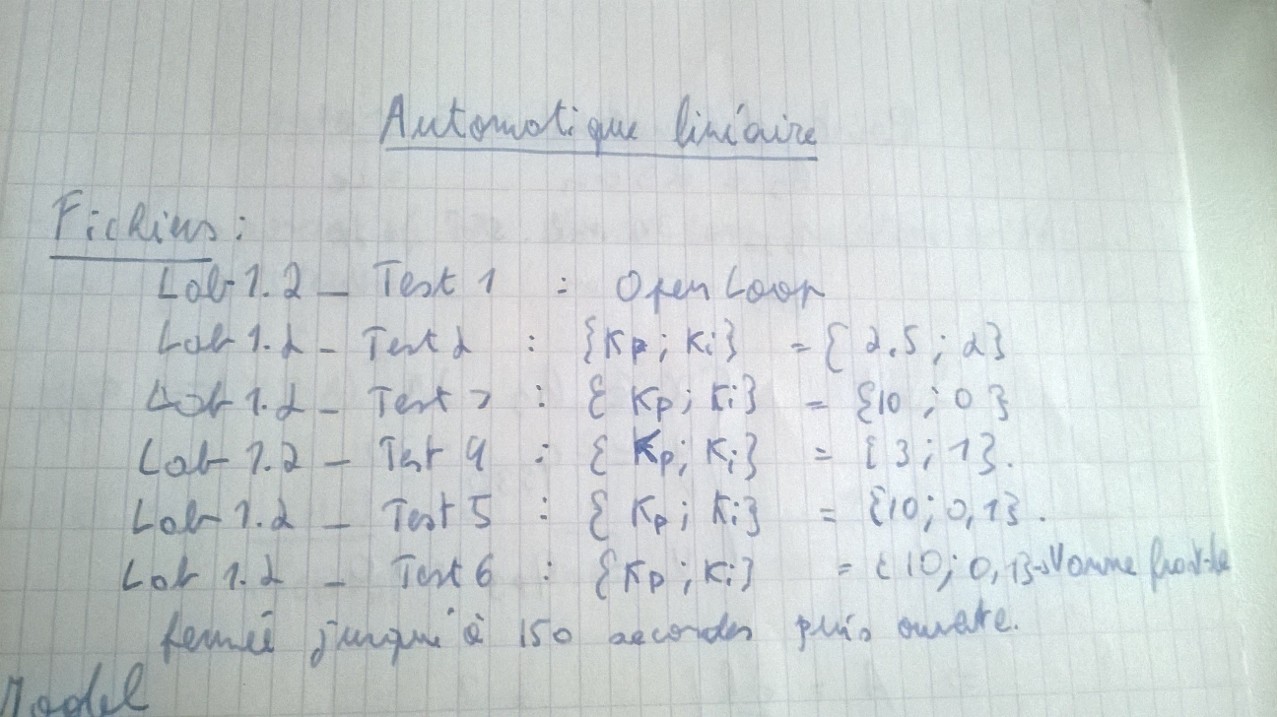 Automatique linéaire
Fichiers:
Lab 1.2 - Test 1 : Open Loop
Lab 1.2 - Test 2 : {Kp; Ki} = {2.5; 2}
Lab 1.2 - Test 3 : {Kp; Ki} = {10; 0}
Lab 1.2 - Test 4 : {Kp; Ki} = {3; 1}.
Lab 1.2 - Test 5 : {Kp; Ki} = {10; 0,1}.
Lab 1.2 - Test 6 : {Kp; Ki} = {10; 0,1} Vanne
fermé jusqu'à 150 secondes puis ouverte.
Model